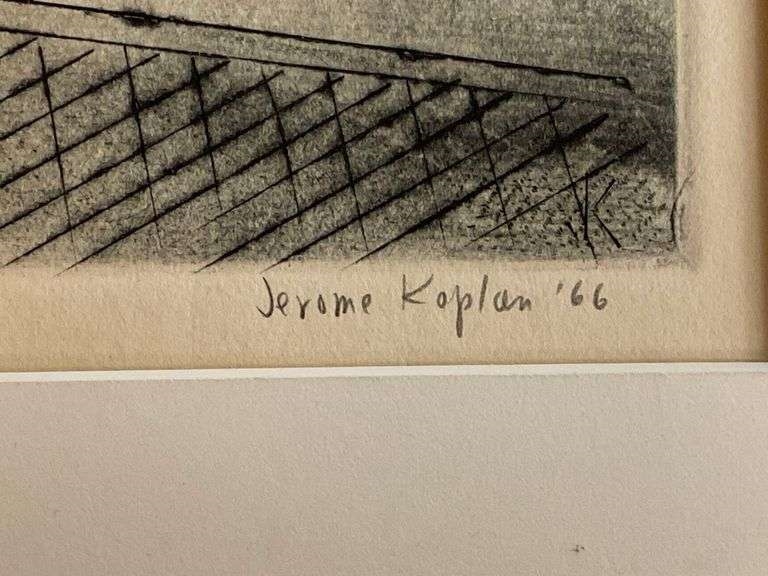 K
Jerome Kaplan '66